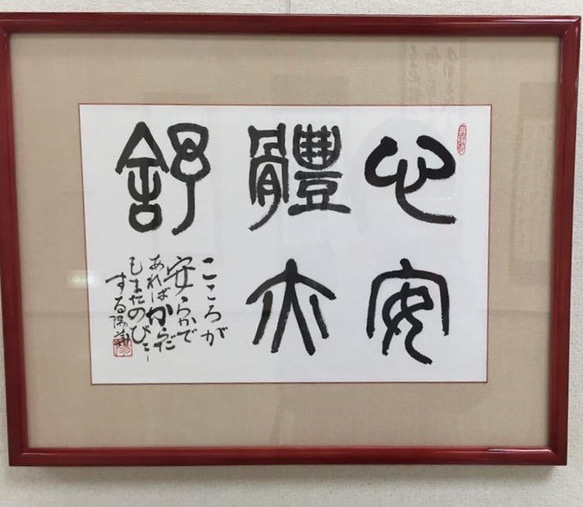 心安
體亦
舒
こころが
安らかで
あればからだ
もまたのび〳〵
する